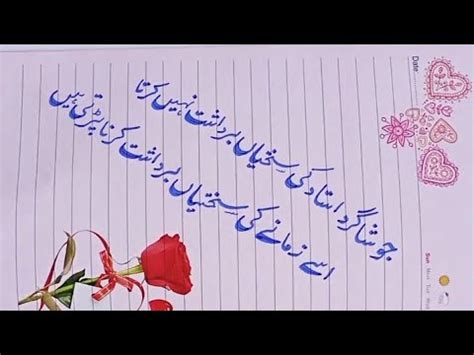 جو شاگرد استاد کی سختیاں برداشت نہیں کرتا
اسے زمانے کی سختیاں برداشت کرنا پڑتی ہیں
Date
Sun Mon Tue Wed